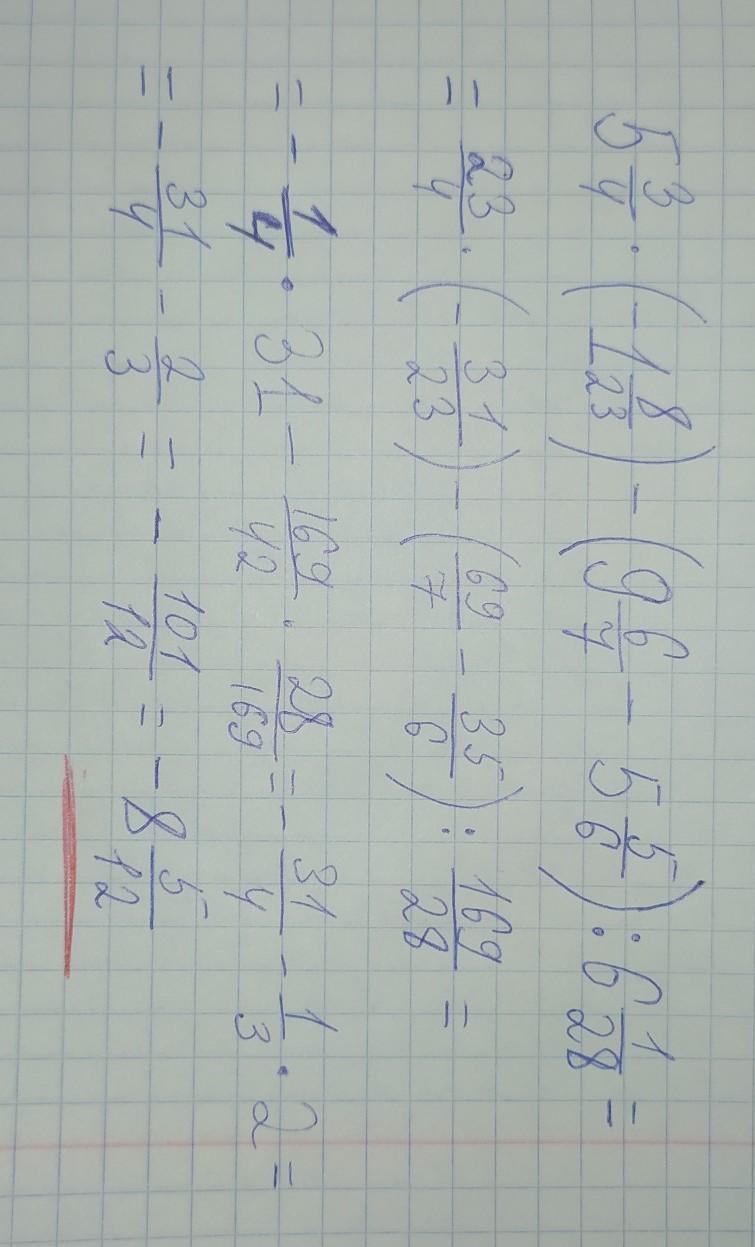 5 3/4 · (-1 8/23) - (9 6/7 - 5 5/6) : 6 1/28 =
= 23/4 · (- 31/23) - (69/7 - 35/6) : 169/28 =
= - 1/4 · 31 - 169/42 · 28/169 = - 31/4 - 1/3 · 2 =
= - 31/4 - 2/3 = - 101/12 = - 8 5/12